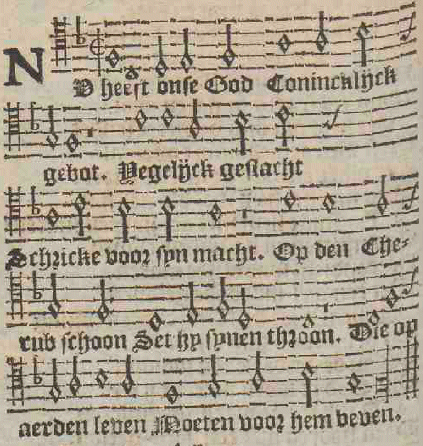 NV heeft onse God Conincklijck
gebot. Yegelijck geslacht
Schricke voor syn macht. Op den Che-
rub schoon Set hy synen throon. Die op
aerden leven Moeten voor hem beven.